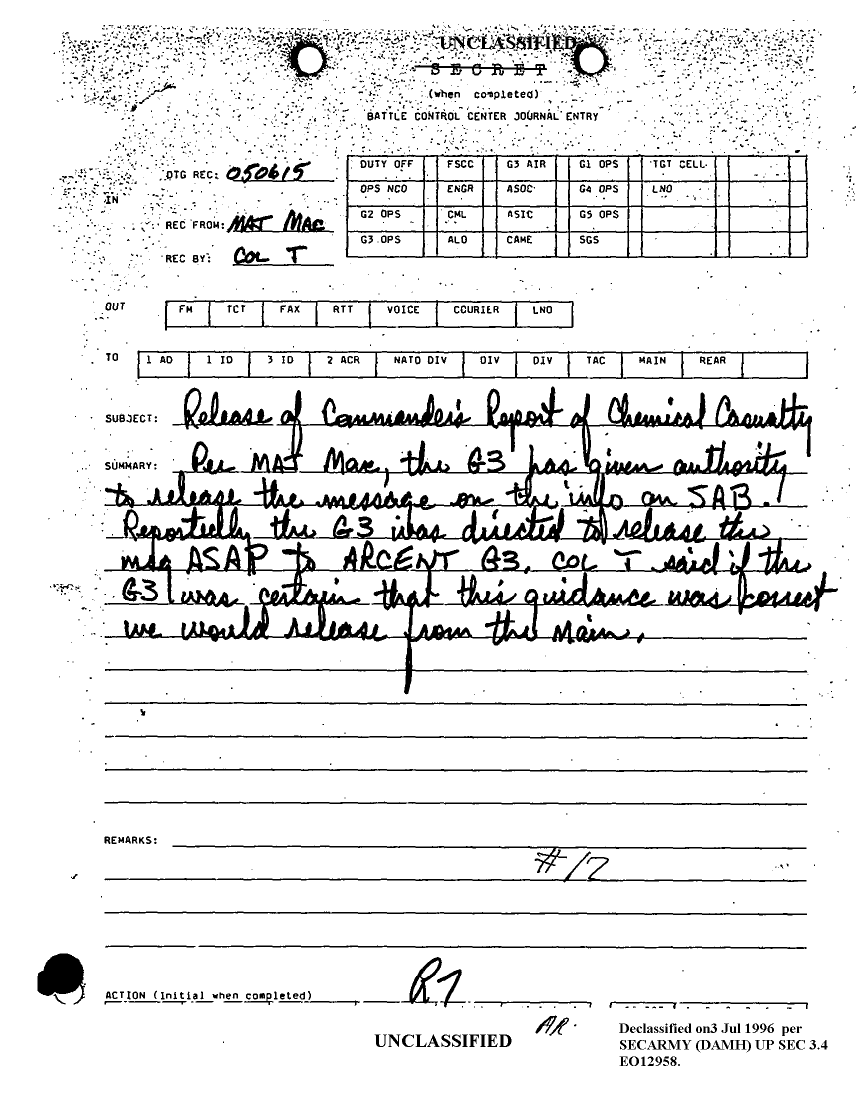 UNCLASSIFIED
SECRET
(when completed)
BATTLE CONTROL CENTER JOURNAL ENTRY
IN
DTG REC: 050615
REC FROM: MAJ Mac
REC BY: COL T
DUTY OFF FSCC G3 AIR G1 OPS TGT CELL
OPS NCO ENGR ASOC G4 OPS LNO
G2 OPS CML ASIC G5 OPS
G3 OPS ALO CAME SGS
OUT FM TCT FAX RTT VOICE COURIER LNO
TO 1 AD 1 ID 3 ID 2 ACR NATO DIV DIV DIV TAC MAIN REAR
SUBJECT: Release of Commander's Report of Chemical Casualty
SUMMARY: Per MAJ Mac, the G3 has given authority
to release the message on the info on SAB.
Reportedly the G3 was directed to release the
msg ASAP to ARCENT G3. COL T said if the
G3 was certain that this guidance was correct
we would release from the Main.
REMARKS:
#17
ACTION (Initial when completed)
UNCLASSIFIED
AR.
Declassified on3 Jul 1996 per
SECARMY (DAMH) UP SEC 3.4
EO12958.